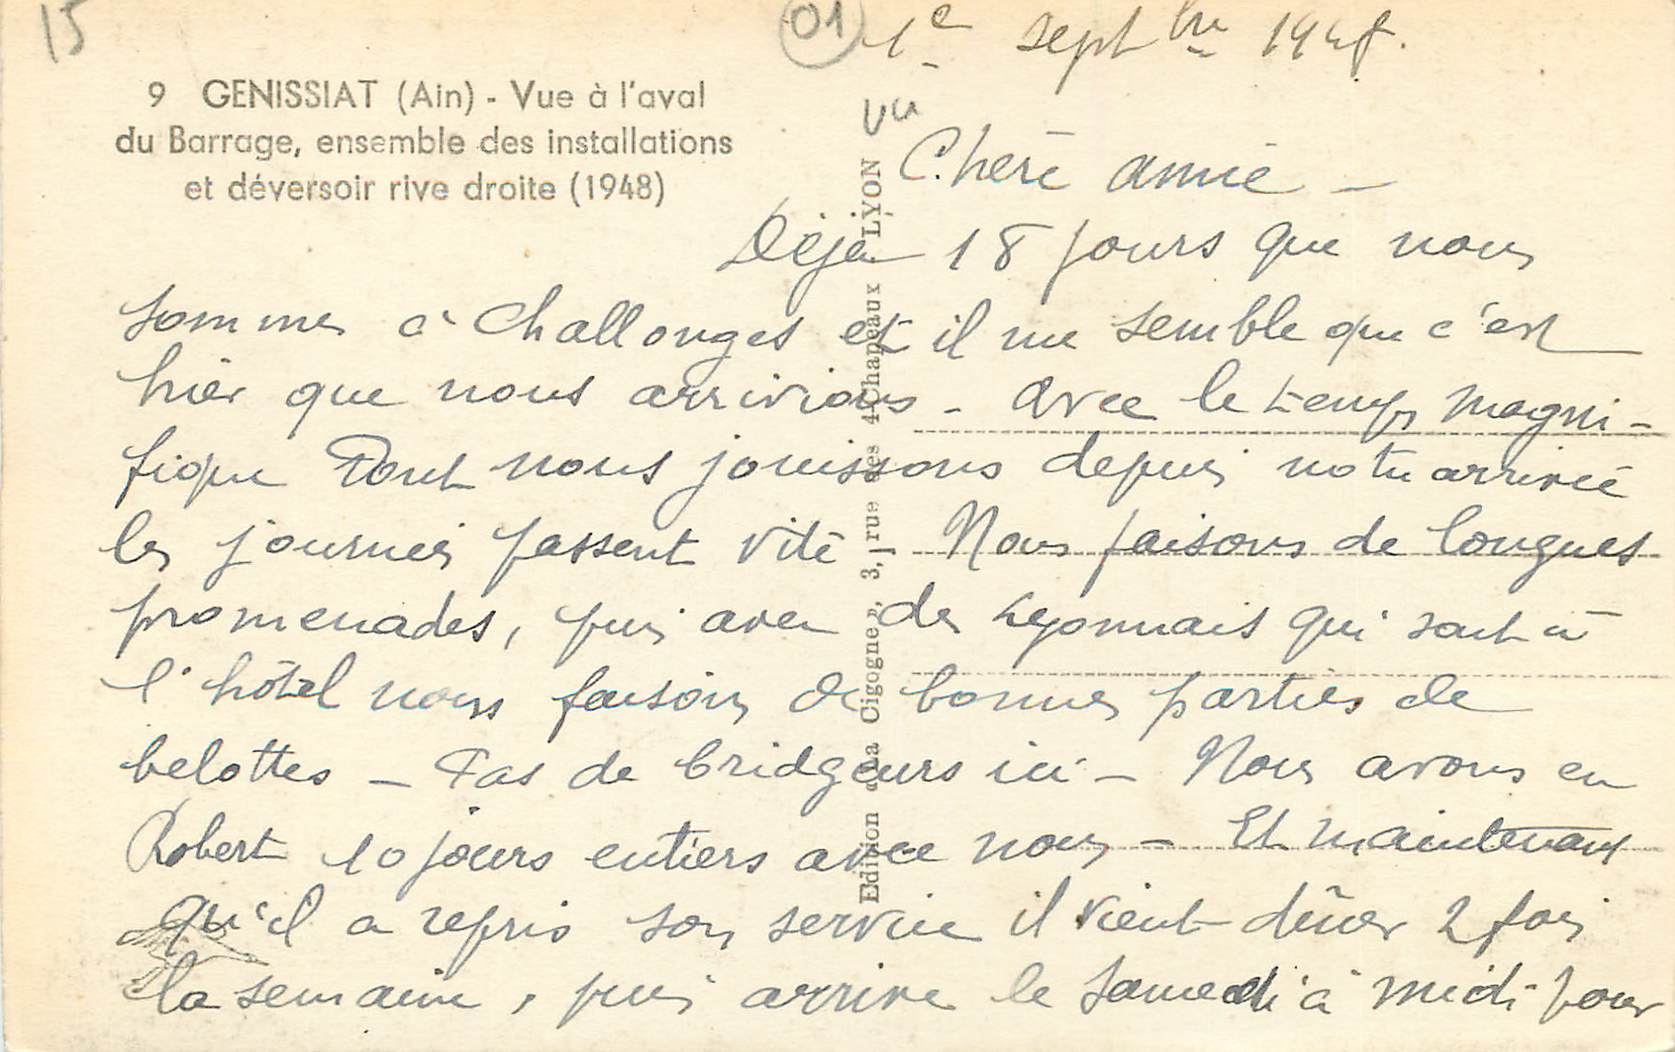 15
01
1e septbre 1948.
9 GENISSIAT (Ain) - Vue à l'aval
du Barrage, ensemble des installations
et déversoir rive droite (1948)
vu
Chère amie -
Déjà 18 jours que nous
sommes à Challonges et il me semble que c'est
hier que nous arrivions - avec le temps magni-
fique dont nous jouissons depuis notre arrivée
les journées passent vite - Nous faisons de longues
promenades, puis avec des Lyonnais qui sont à
l'hôtel nous faisons de bonnes parties de
belottes - Pas de bridgeurs ici - Nous avons eu
Robert 10 jours entiers avec nous - Et maintenant
qu'il a repris son service il vient dîner 2 fois
la semaine, puis arrive le samedi à midi pour
Edition "La Cigogne", 3, rue des 4-Chapeaux LYON